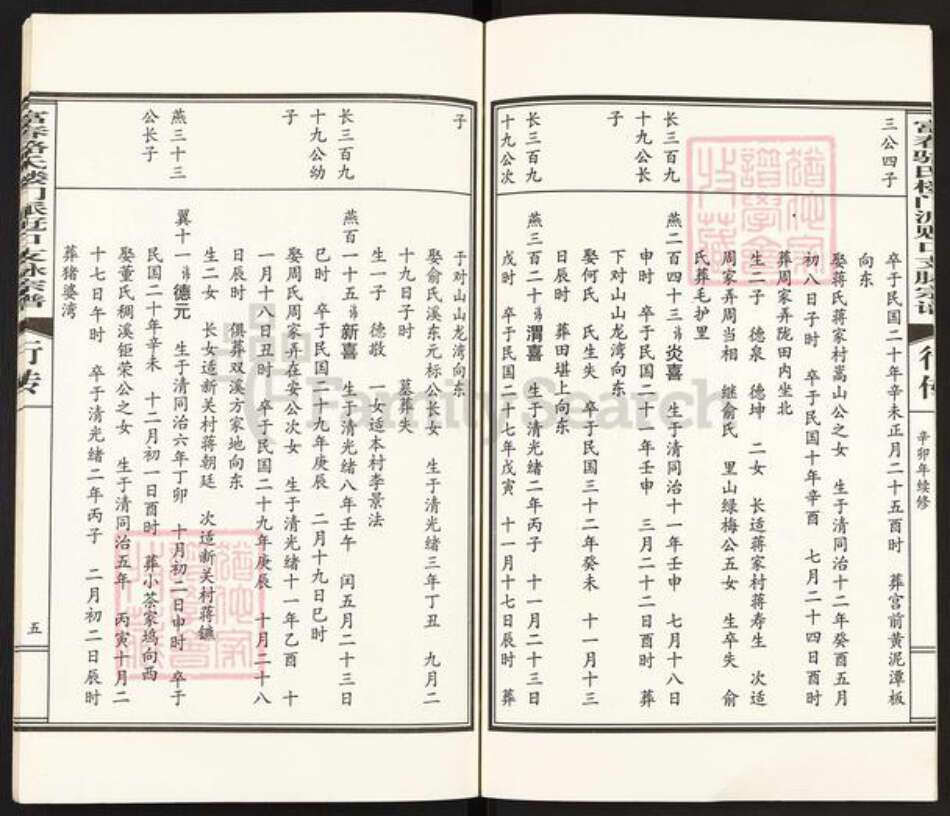 富春骆氏楼门派
支脉宗谱
行传
辛卯年续修
三公四子
卒于民国二十年辛未正月二十五酉时 葬宫前黄泥潭板
向东
娶蒋氏蒋家村嵩山公之女 生于清同治十二年癸酉五月
初八日子时 卒于民国十年辛酉 七月二十四日酉时
葬周家弄陇田内坐北
生二子 德泉 德坤 二女 长适蒋家村蒋寿生 次适
周家弄周当相 继俞氏 里山绿梅公五女 生卒失 俞
氏葬毛护里
长三百九
十九公长
子
燕二百四十三 讳 炎喜 生于清同治十一年壬申 七月十八日
申时 卒于民国二十一年壬申 三月二十二日酉时 葬
下对山山龙湾向东
娶何氏 氏生失 卒于民国三十二年癸未 十一月十三
日辰时 葬田堪上向东
长三百九
十九公次
子
燕三百二十 讳 渭喜 生于清光绪二年丙子 十一月二十三日
戌时 卒于民国二十七年戊寅 十一月十七日辰时 葬
于对山山龙湾向东
娶俞氏溪东元标公长女 生于清光绪三年丁丑 九月二
十九日子时 墓葬失
生一子 德敬 一女适本村李景法
长三百九
十九公幼
子
燕百一十五 讳 新喜 生于清光绪八年壬午 闰五月二十三日
巳时 卒于民国二九年庚辰 二月十九日巳时
娶周氏周家弄在安公次女 生于清光绪十一年乙酉 十
一月十八日丑时 卒于民国二十九年庚辰 十月二十八
日辰时 俱葬双溪方家地向东
生二女 长女适新关村蒋朝廷 次适新关村蒋镳
燕三十三
公长子
翼十一 讳 德元 生于清同治六年丁卯 十月初二日申时 卒于
民国二十年辛未 十二月初一日酉时 葬小茶家坞向西
娶董氏稠溪钜荣公之女 生于清同治五年 丙寅十月二
十七日午时 卒于清光绪二年丙子 二月初二日辰时
葬猪婆湾
富春骆氏楼门派
支脉宗谱
行传
五
FamilySearch